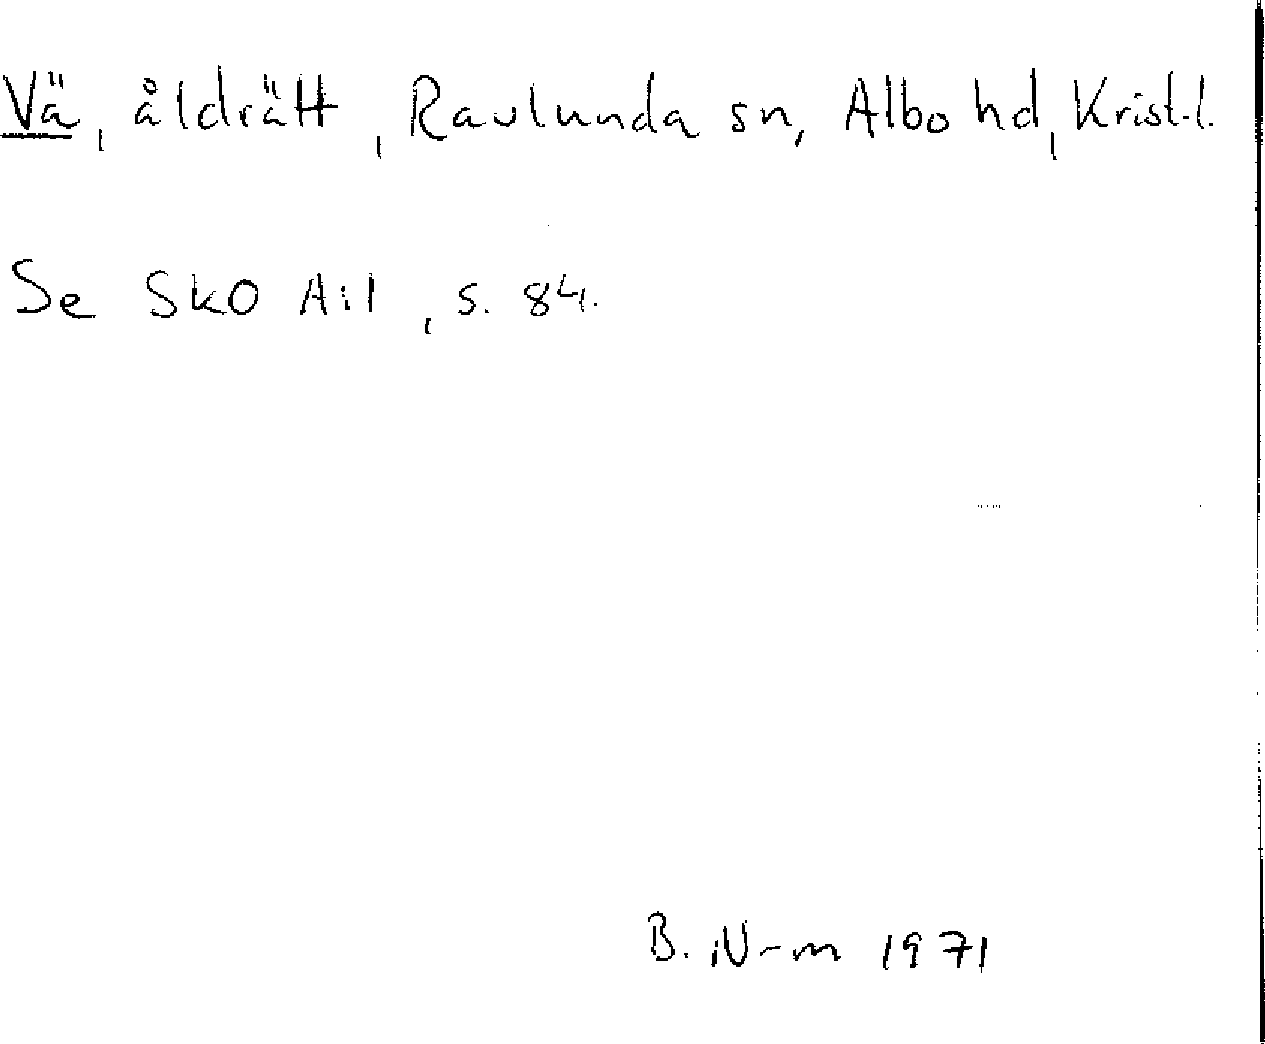 Vä, åldrätt, Ravlunda sn, Albo hd, Krist.l.
Se SkO A:1, s. 84.
B. N-m 1971